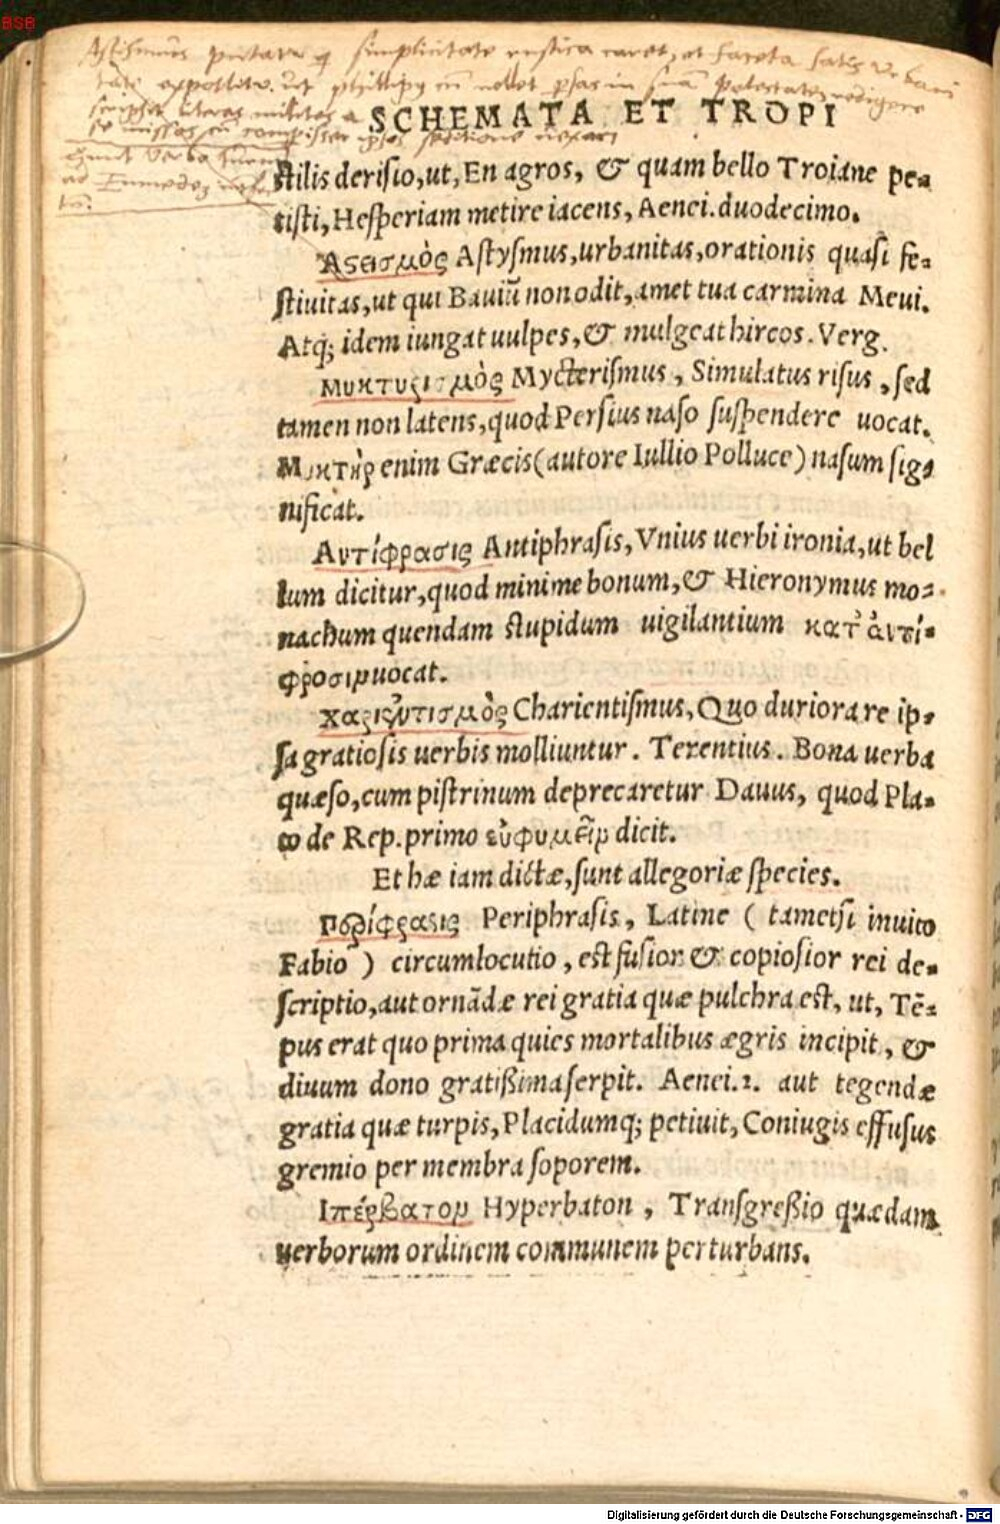 BSB
SCHEMATA ET TROPI
stilis derisio, ut, En agros, & quam bello Troiane pe-
tisti, Hesperiam metire iacens, Aenei. duodecimo.
Ἀςεισμὸς Astysmus, urbanitas, orationis quasi fe-
stiuitas, ut qui Bauiũ non odit, amet tua carmina Meui.
Atq; idem iungat uulpes, & mulgeat hircos. Verg.
μυκτυρισμὸς Mycterismus, Simulatus risus, sed
tamen non latens, quod Persius naso suspendere uocat.
Μυκτὴρ enim Græcis (autore Iullio Polluce) nasum sig-
nificat.
Αντίφρασις Antiphrasis, Vnius uerbi ironia, ut bel
lum dicitur, quod minime bonum, & Hieronymus mo-
nachum quendam stupidum uigilantium κατ᾽ ἀντί-
φροσιν uocat.
χαριεντισμὸς Charientismus, Quo duriora re ip-
sa gratiosis uerbis molliuntur. Terentius. Bona uerba
quæso, cum pistrinum deprecaretur Dauus, quod Pla-
to de Rep. primo εὐφυμεῖν dicit.
Et hæ iam dictæ, sunt allegoriæ species.
Περίφρασις Periphrasis, Latine ( tametsi inuito
Fabio ) circumlocutio, est fusior & copiosior rei de-
scriptio, aut ornãdæ rei gratia quæ pulchra est, ut, Tẽ-
pus erat quo prima quies mortalibus ægris incipit, &
diuum dono gratißima serpit. Aenei.2. aut tegendæ
gratia quæ turpis, Placidumq; petiuit, Coniugis effusus
gremio per membra soporem.
Ιπέρβατον Hyperbaton, Transgreßio quædam
uerborum ordinem communem perturbans.
Digitalisierung gefördert durch die Deutsche Forschungsgemeinschaft - DFG